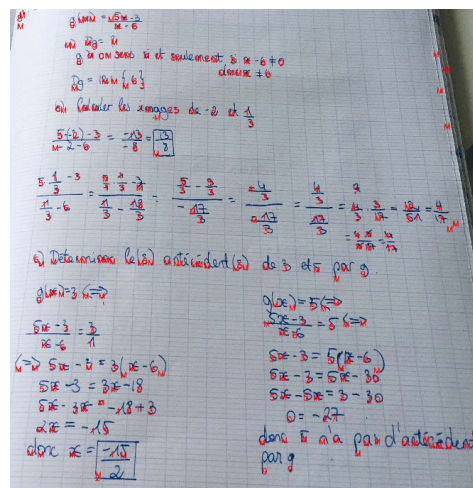 g(x) = 5x-3 / x-6
a) Dg =
g a un sens si et seulement si x-6 ≠ 0
donc x ≠ 6
Dg = IR \ {6}
b) Calculer les images de -2 et 1/3
5(-2)-3 / -2-6 = -13 / -8 = 13/8
5 1/3 -3 / 1/3 -6 = / 1/3 - 18/3 = 5/3 - 9/3 / -17/3 = -4/3 / -17/3 = 4/3 / 17/3 = 4/3 3/17 = 12/51 = 4/17
= 4/17
c) Déterminer le(s) antécédent(s) de 3 et 5 par g.
g(x) = 3 <=>
5x-3 / x-6 = 3/1
<=> 5x-3 = 3(x-6)
5x-3 = 3x-18
5x-3x = -18+3
2x = -15
donc x = -15/2
g(x) = 5 <=>
5x-3 / x-6 = 5 <=>
5x-3 = 5(x-6)
5x-3 = 5x-30
5x-5x = 3-30
0 = -27
donc 5 n'a pas d'antécédent
par g